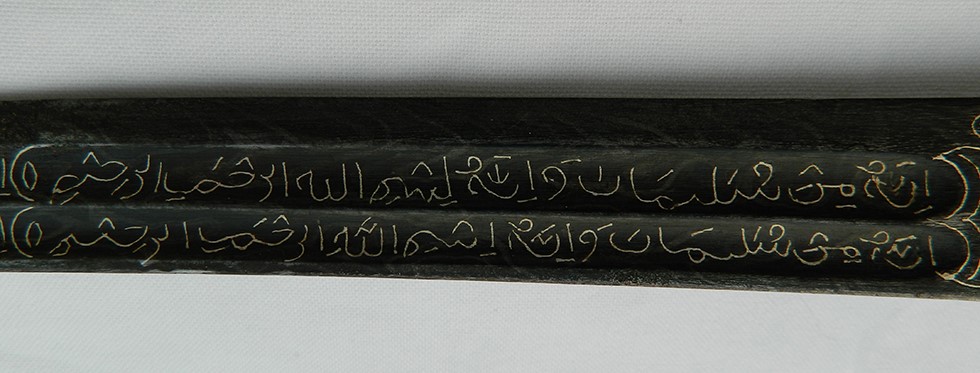 اِنَّهُ مِنْ سُلَيمَانَ وَاِنَّهُ بِسْمِ الله الرحمن الرحيم
اِنَّهُ مِنْ سُلَيمَانَ وَاِنَّهُ بِسْمِ اللّٰه الرحمن الرحيم